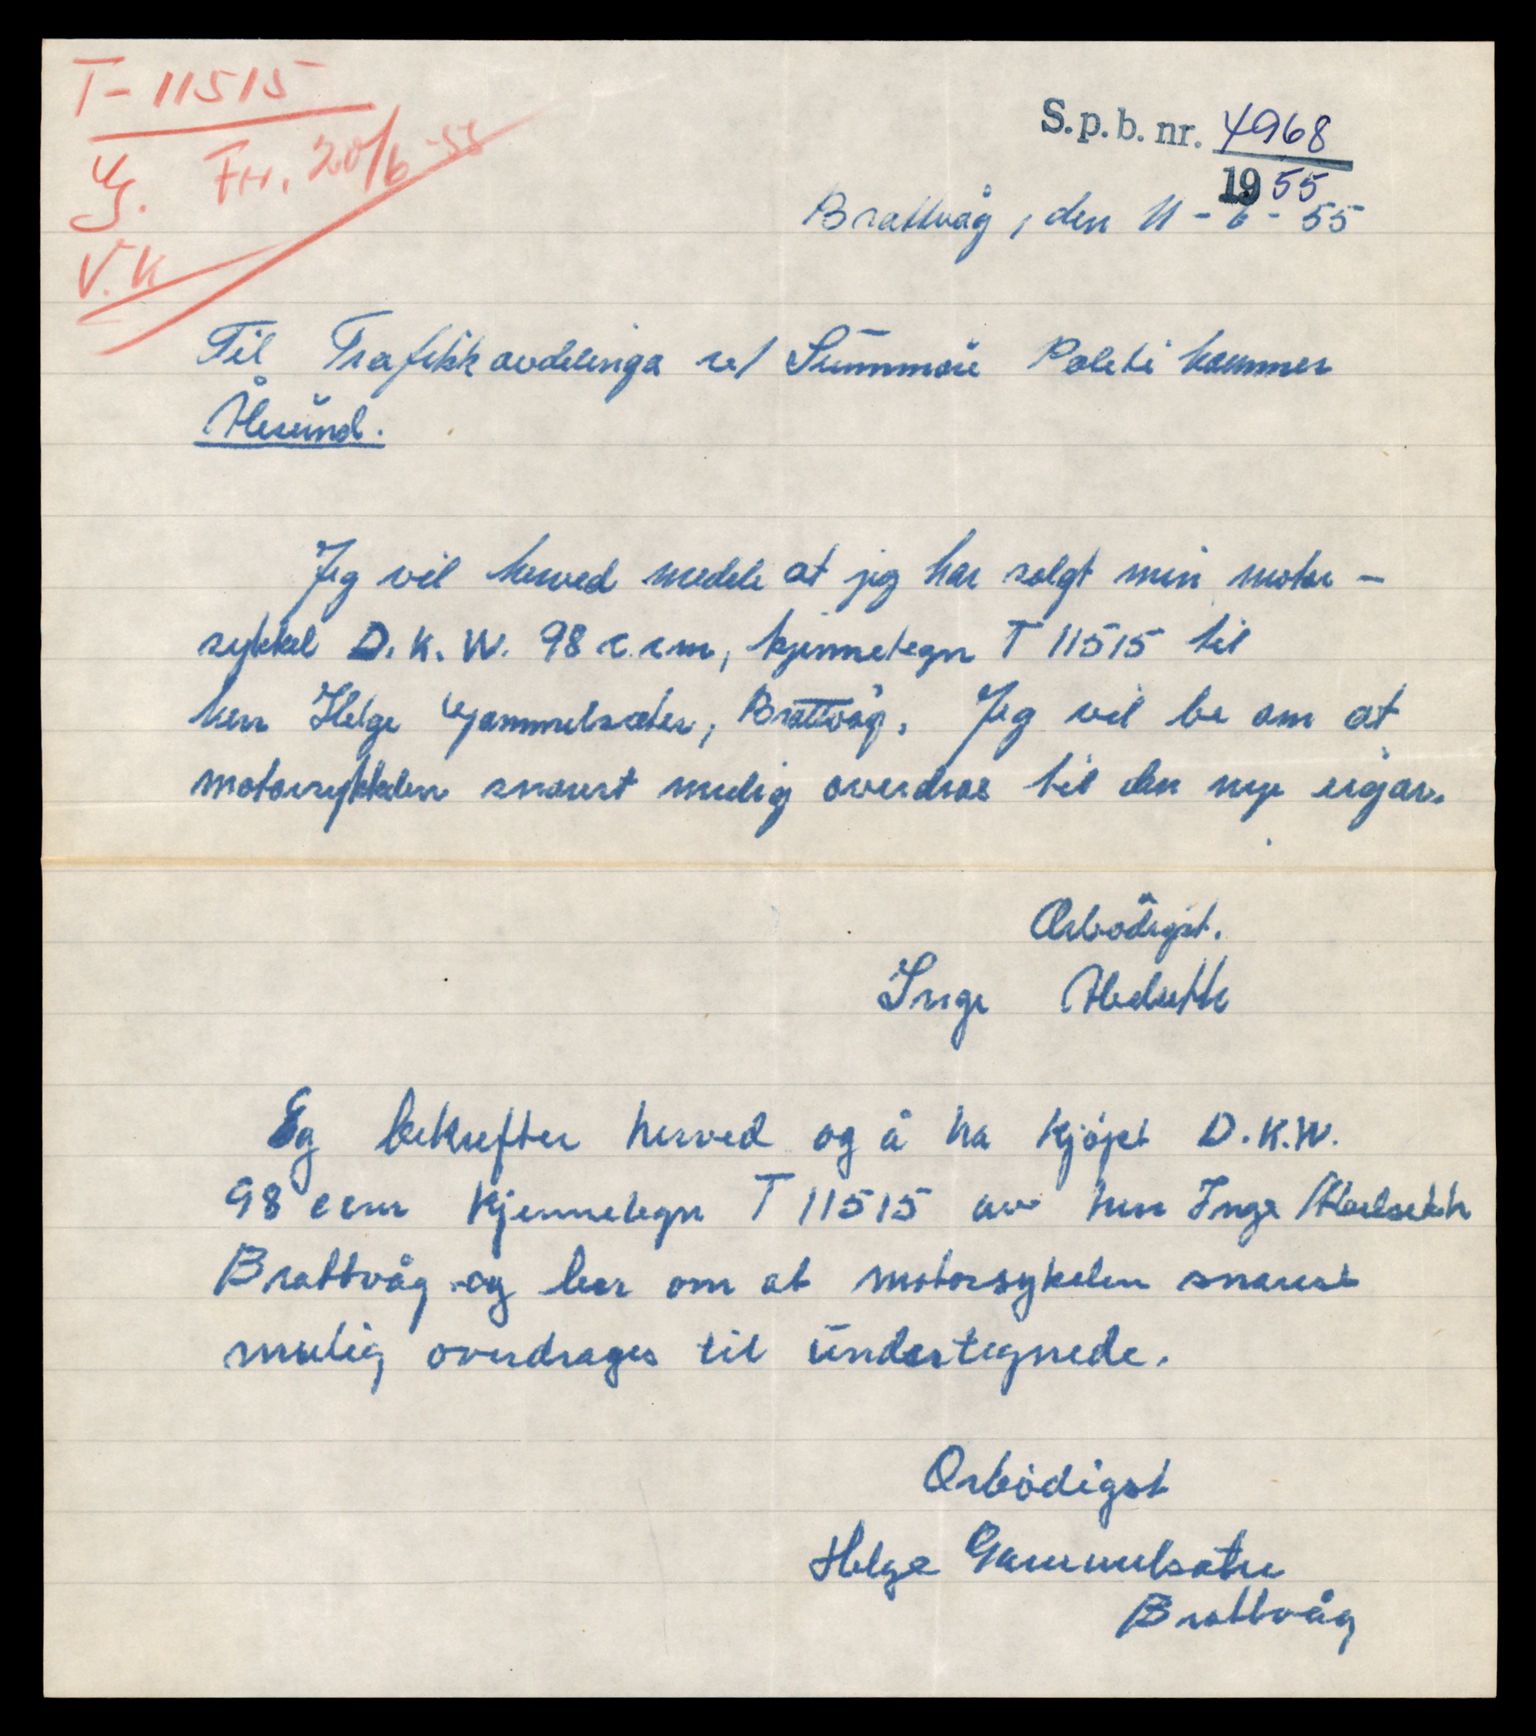 T-11515
G. Fr. 20/6-55
V.K
S.p.b. nr. 4968
1955
Brattvåg, den 11-6-55
Til Trafikkavdelinga v/ Sunnmøre Politikammer
Ålesund.
Jeg vil herved medele at jeg har solgt min motor-
sykkel D.K.W. 98 c.c.m, kjennetegn T 11515 til
herr Helge Gammelsæter, Brattvåg. Jeg vil be om at
motorsykkelen snarest mulig overdras til den nye eigar.
Ærbødigst.
Inge
Eg bekrefter herved og å ha kjøpt D.K.W.
98 ccm kjennetegn T 11515 av herr Inge
Brattvåg og ber om at motorsykelen snarest
mulig overdrages til undertegnede.
Ærbödigst
Helge Gammelsæter
Brattvåg